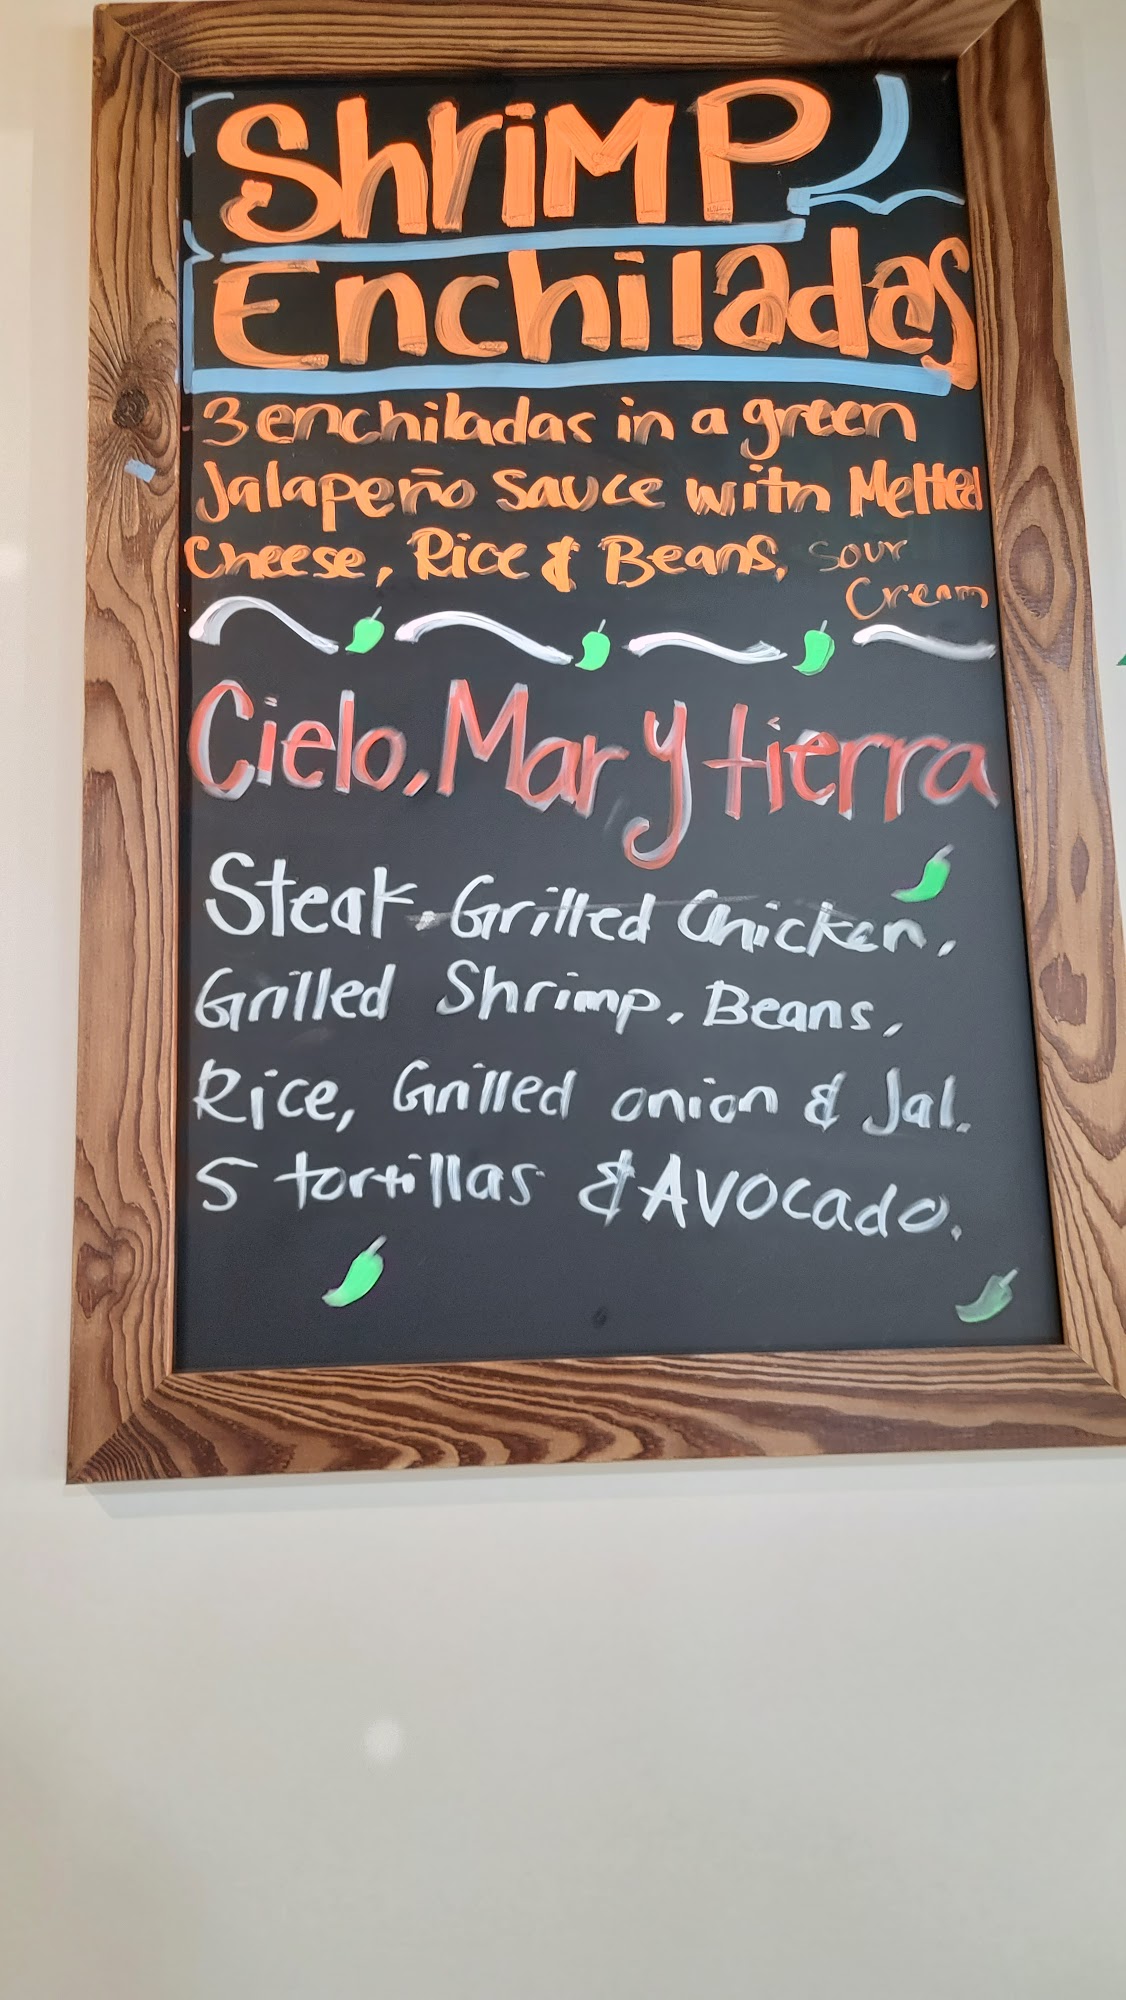 ShriMP
Enchiladas
3 enchiladas in a green
Jalapeño Sauce with Melted
Cheese, Rice & Beans, Sour
Cream
Cielo, Mar y tierra
Steak, Grilled Chicken,
Grilled Shrimp, Beans,
Rice, Grilled onion & Jal.
5 tortillas & Avocado.